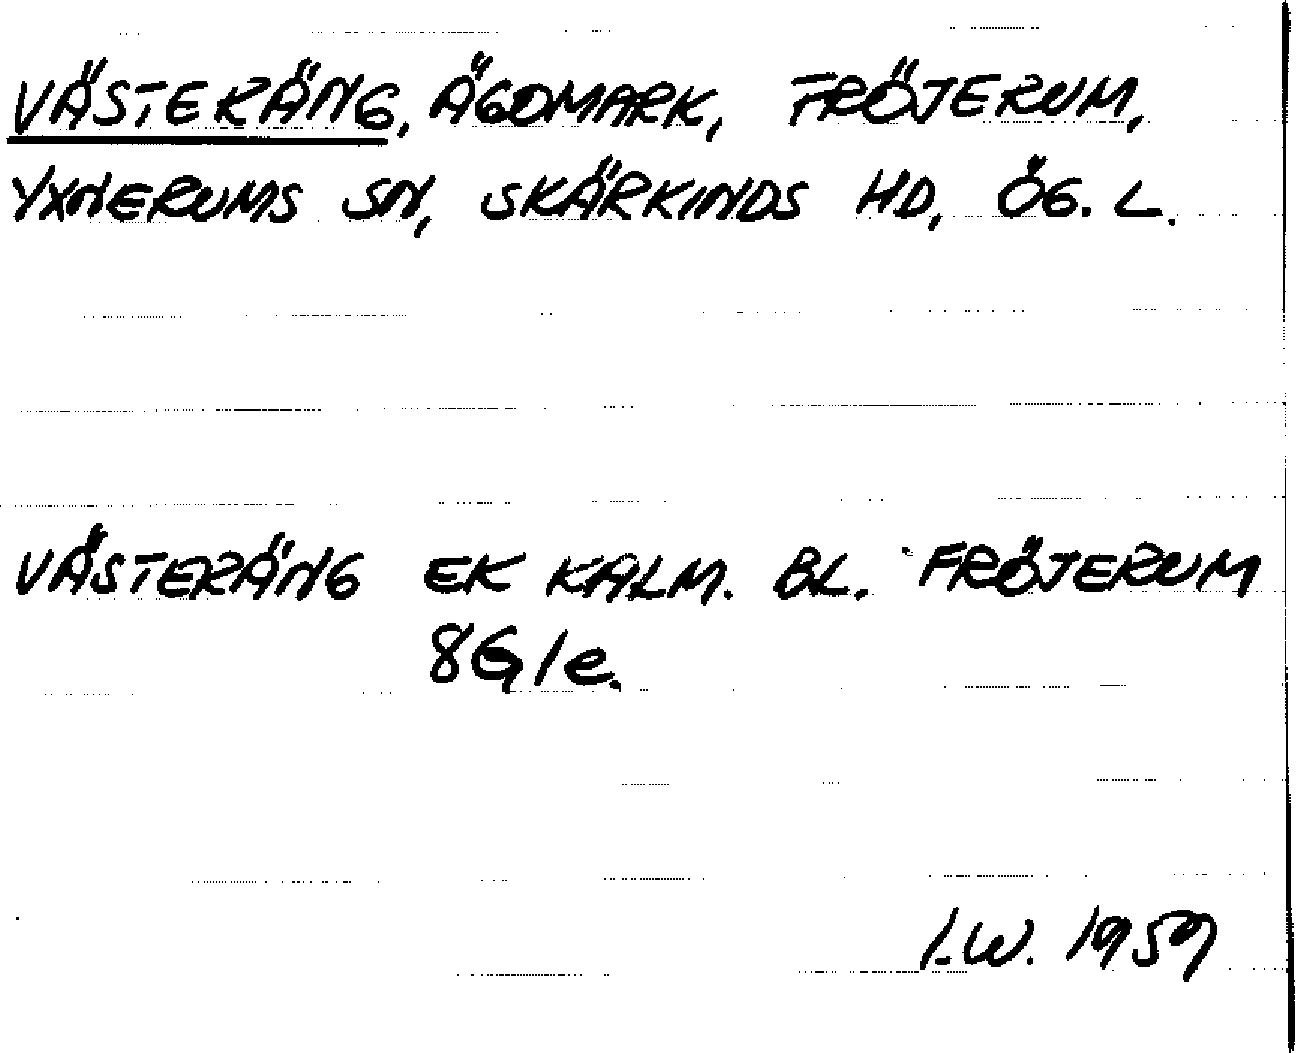 VÄSTERÄNG, ÄGOMARK, FRÖJERUM,
YXNERUMS SN, SKÄRKINDS HD, ÖG. L.
VÄSTERÄNG EK KALM. BL. FRÖJERUM
8G1e.
I.W. 1959